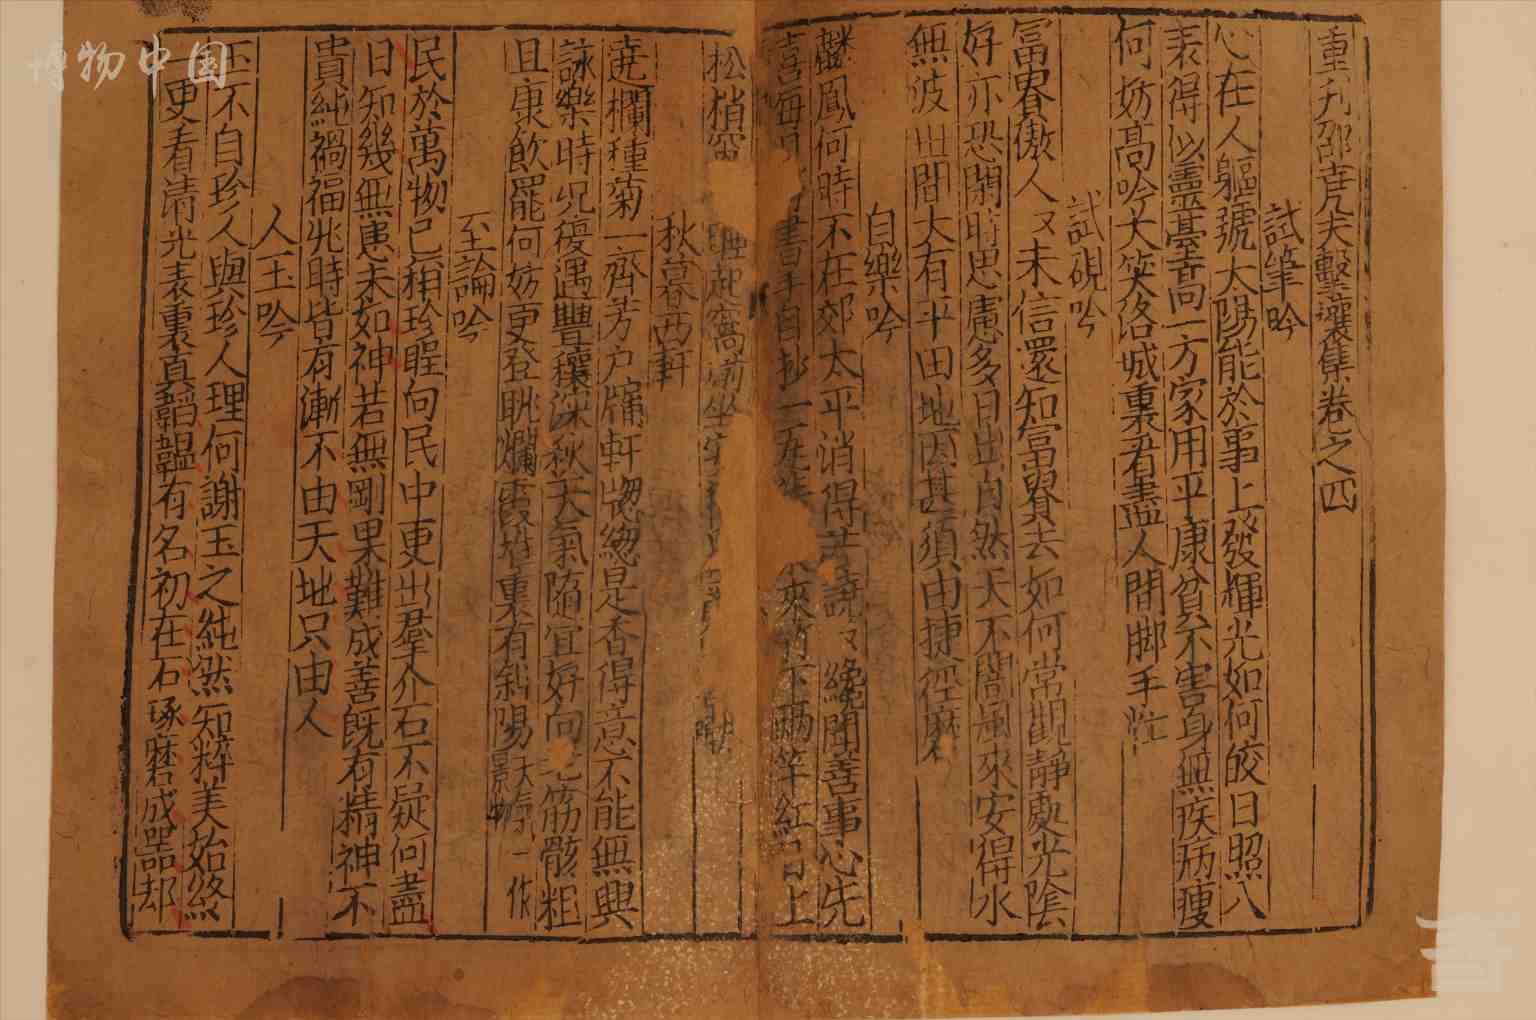 重刋邵堯夫擊瓖集卷之四
試筆吟
心在人軀號太陽能於事上發輝光如何皎日照八
表得以靈臺高一方家用平康貧不害身無疾病瘦
何妨高吟大笑洛城裏看盡人間脚手忙
試硯吟
冨貴傲人〻未信還知冨貴去如何常觀靜處光隂
好亦恐閑時思慮多日出自然天不闇風來安得水
無波世間大有平田地因甚須由捷徑麽
自樂吟
麟鳳何時不在郊太平消得苦譊〻纔聞善事心先
喜每見 書手自抄一 來竹下兩竿紅日上
松梢窗 睡起窩前坐安
秋暮西軒
遶欄種菊一齊芳户牖軒牕緫是香得意不能無興
詠樂時况復遇豐穰深秋天氣隨宜好向老筋骸粗
且康飲罷何妨更登眺爛霞堆裏有斜陽 景物 一作
至論吟
民於萬物已稱珍聖向民中更出羣介石不疑何盡
日知幾無患未如神若無剛果難成善旣有精神不
貴純禍福兆時皆有漸不由天地只由人
人玉吟
玉不自珍人與珍人理何謝玉之純然知粹美始終
更看清光表裏真韜韞有名初在石琢磨成器却
博物中国